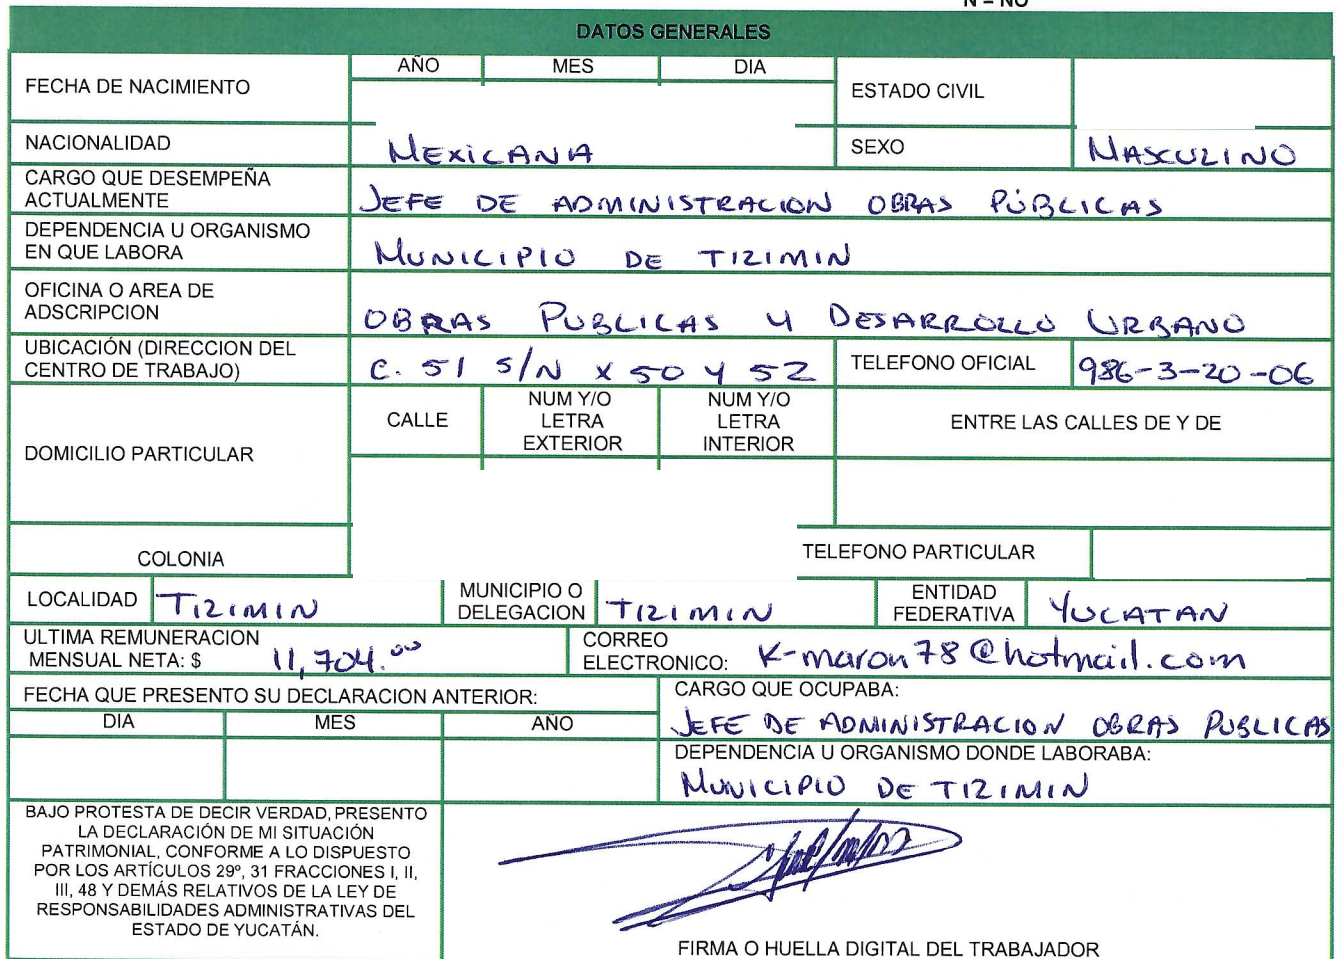 N = NO
DATOS GENERALES
FECHA DE NACIMIENTO
AÑO MES DIA
ESTADO CIVIL
NACIONALIDAD MEXICANA SEXO MASCULINO
CARGO QUE DESEMPEÑA
ACTUALMENTE
JEFE DE ADMINISTRACION OBRAS PÚBLICAS
DEPENDENCIA U ORGANISMO
EN QUE LABORA
MUNICIPIO DE TIZIMIN
OFICINA O AREA DE
ADSCRIPCION
OBRAS PUBLICAS Y DESARROLLO URBANO
UBICACIÓN (DIRECCION DEL
CENTRO DE TRABAJO)
C. 51 S/N X 50 Y 52
TELEFONO OFICIAL 986-3-20-06
DOMICILIO PARTICULAR
CALLE
NUM Y/O
LETRA
EXTERIOR
NUM Y/O
LETRA
INTERIOR
ENTRE LAS CALLES DE Y DE
COLONIA
TELEFONO PARTICULAR
LOCALIDAD TIZIMIN
MUNICIPIO O
DELEGACION
TIZIMIN
ENTIDAD
FEDERATIVA
YUCATAN
ULTIMA REMUNERACION
MENSUAL NETA: $ 11,704.00
CORREO
ELECTRONICO: K-maron78@hotmail.com
FECHA QUE PRESENTO SU DECLARACION ANTERIOR:
DIA MES AÑO
CARGO QUE OCUPABA:
JEFE DE ADMINISTRACION OBRAS PUBLICAS
DEPENDENCIA U ORGANISMO DONDE LABORABA:
MUNICIPIO DE TIZIMIN
BAJO PROTESTA DE DECIR VERDAD, PRESENTO
LA DECLARACIÓN DE MI SITUACIÓN
PATRIMONIAL, CONFORME A LO DISPUESTO
POR LOS ARTÍCULOS 29º, 31 FRACCIONES I, II,
III, 48 Y DEMÁS RELATIVOS DE LA LEY DE
RESPONSABILIDADES ADMINISTRATIVAS DEL
ESTADO DE YUCATÁN.
FIRMA O HUELLA DIGITAL DEL TRABAJADOR